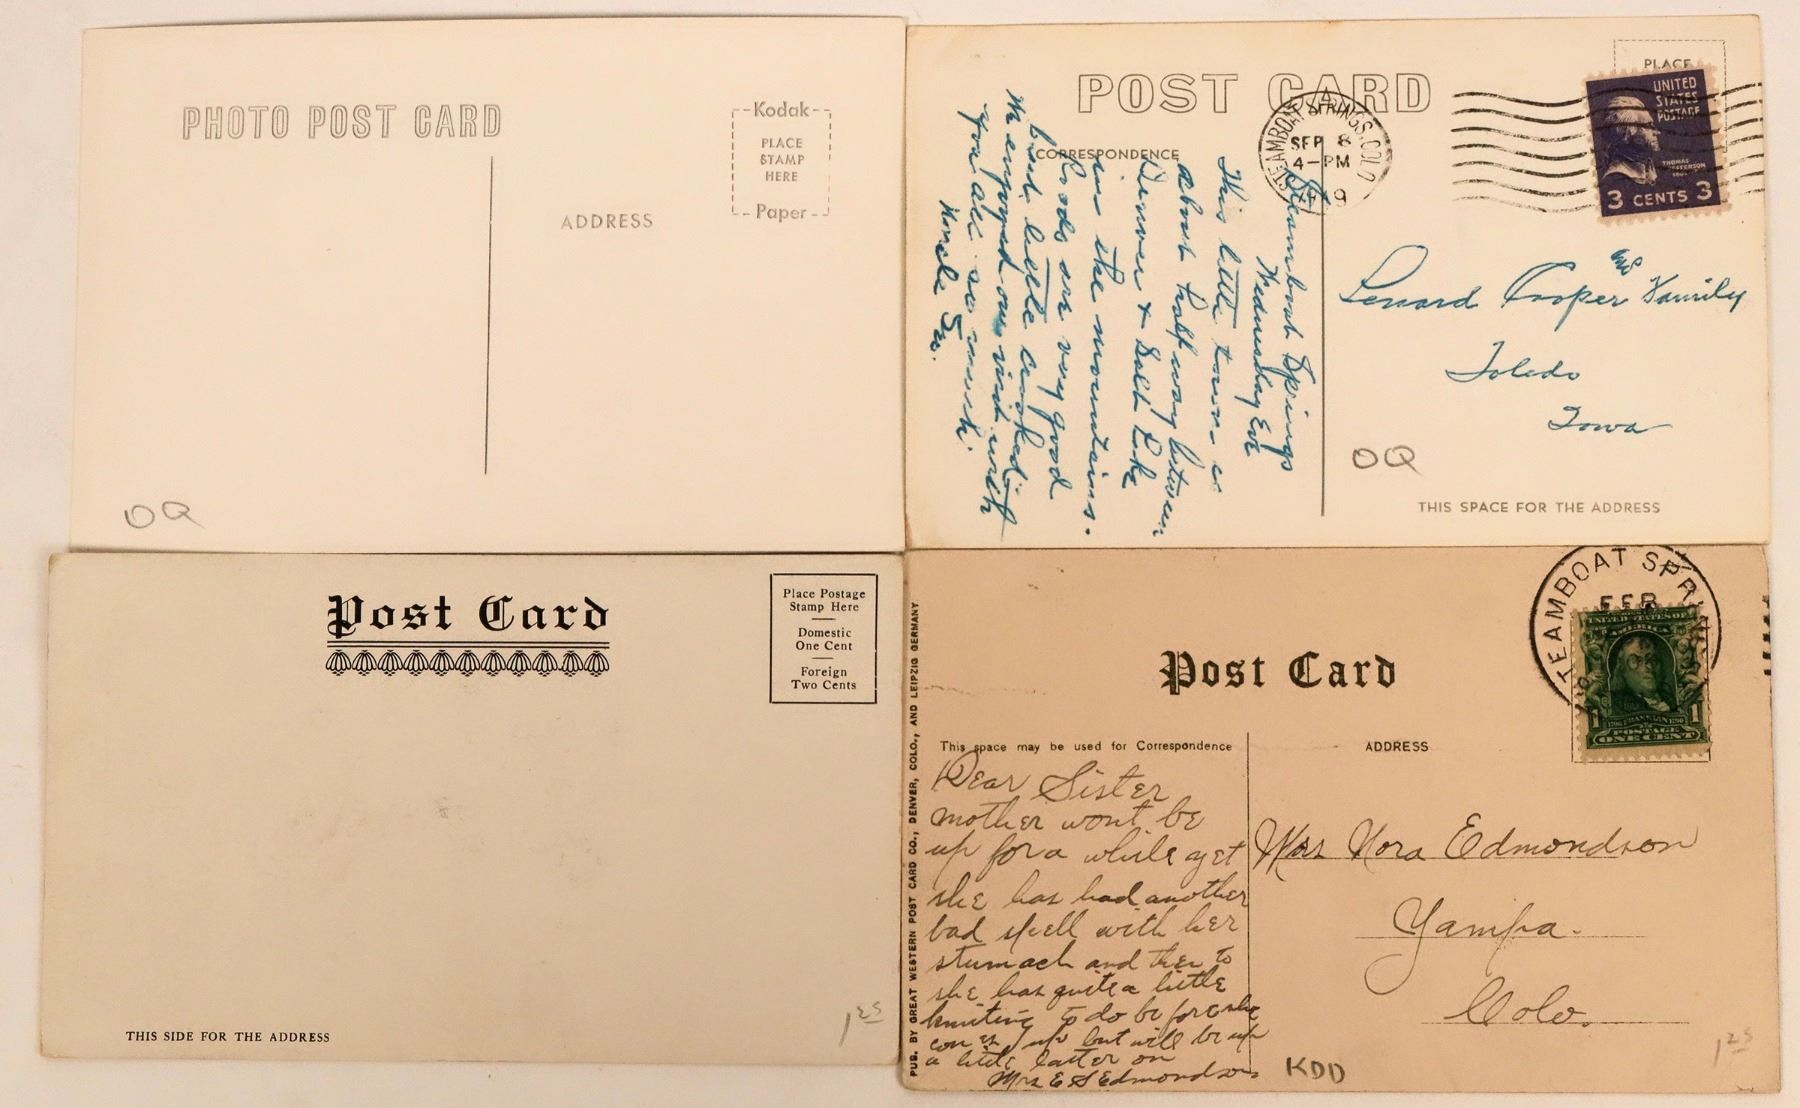 PHOTO POST CARD
Kodak
PLACE
STAMP
HERE
Paper
ADDRESS
OQ
POST CARD
PLACE
CORRESPONDENCE
STEAMBOAT SPRINGS, COLO
SEP 8
4-PM
UNITED
STATES
POSTAGE
THOMAS
JEFFERSON
3 CENTS 3
Steamboat Springs
Wednesday Eve
This little town is
about half way between
Denver & Salt Lake
in the mountains.
Roads are very good
but little crooked.
We enjoyed our visit with
you all so much.
Uncle
Lenard Cooper and Family
Toledo
Iowa
OQ
THIS SPACE FOR THE ADDRESS
Post Card
Place Postage
Stamp Here
Domestic
One Cent
Foreign
Two Cents
THIS SIDE FOR THE ADDRESS
1 25
PUB. BY GREAT WESTERN POST CARD CO., DENVER, COLO., AND LEIPZIG GERMANY
Post Card
STEAMBOAT SPRINGS
FEB
UNITED STATES OF
AMERICA
1 1
1706 FRANKLIN 1790
POSTAGE
ONE CENT
This space may be used for Correspondence
ADDRESS
Dear Sister
mother wont be
up for a while yet
she has had another
bad spell with her
stumach and then to
she has quite a little
knitting to do before she
comes up but will be up
a little latter on
Mrs E S Edmondson
Mrs Nora Edmondson
Yampa.
Colo.
KDD
1 25